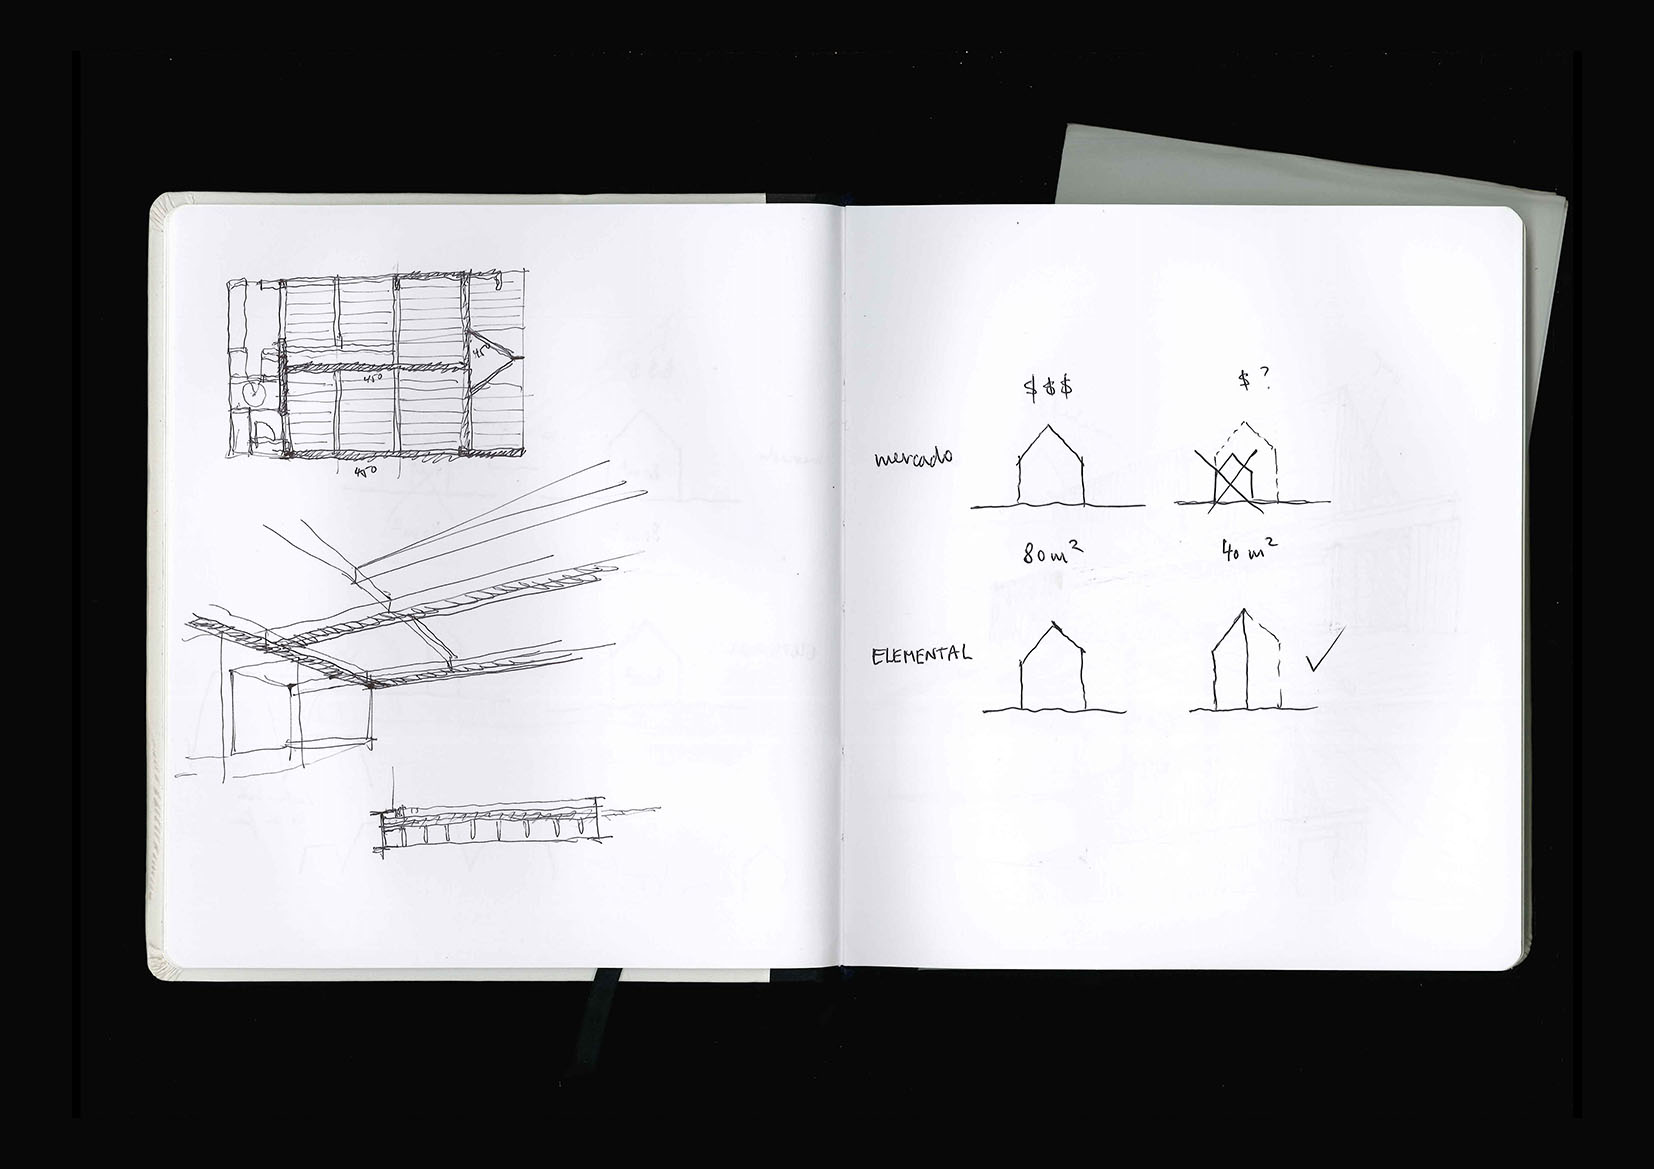 450
450
450
$$$ $?
mercado
80m² 40m²
ELEMENTAL